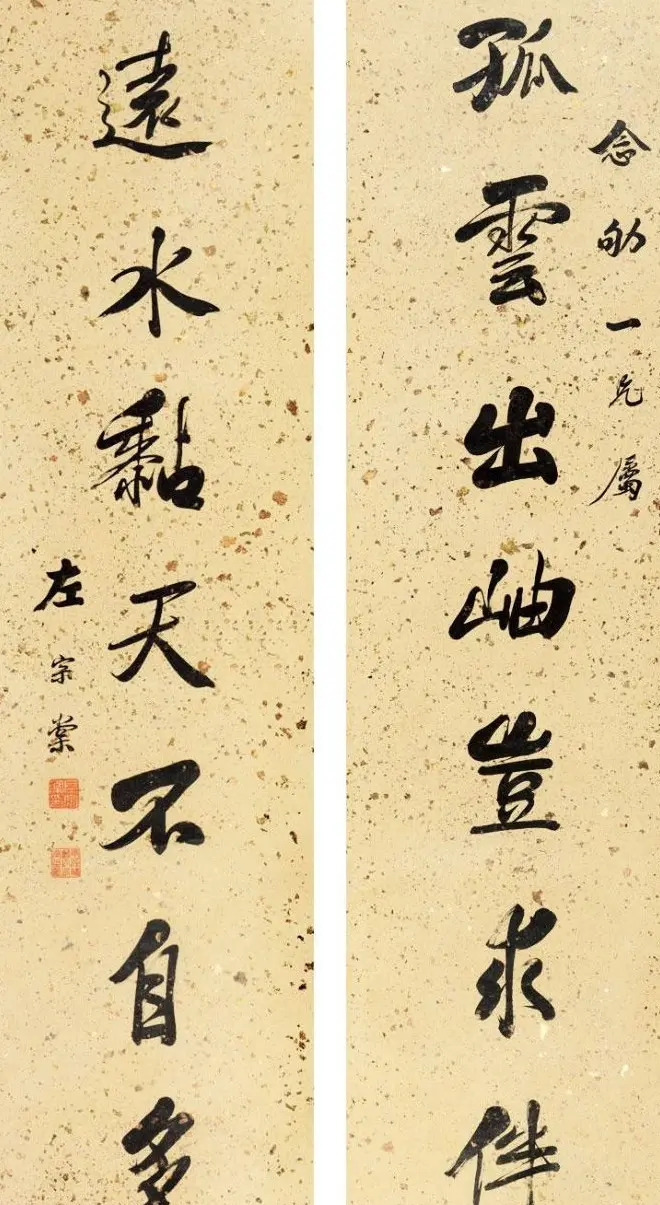 念劬一兄屬
孤雲出岫豈求伴
遠水黏天不自多
左宗棠